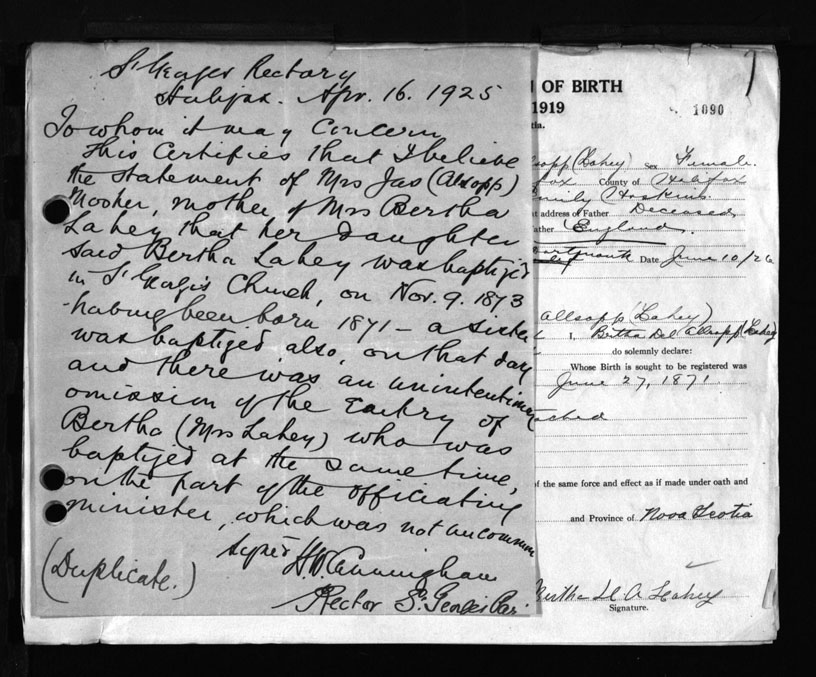 St Georges Rectory
Halifax. Apr. 16. 1925
To whom it may Concern
This Certifies that I believe
the statement of Mrs Jas (Alsopp)
Mosher, mother of Mrs Bertha
Lahey that her daughter
said Bertha Lahey was baptized
in St Georges Church, on Nov. 9. 1873
having been born 1871 – a sister
was baptized also, on that day
and there was an unintentional
omission of the Entry of
Bertha (Mrs Lahey) who was
baptized at the same time,
on the part of the officiating
minister, which was not uncommon
signed H W Cunningham
Rector St Georges Par.
(Duplicate.)
OF BIRTH
1919
1090
(Lahey) Sex Female
County of Halifax
Emily Hoskins
address of Father Deceased
Father England
Dartmouth Date June 10/26
Allsopp (Lahey)
I, Bertha Del Allsopp (Lahey)
do solemnly declare:
Whose Birth is sought to be registered was
June 27, 1871
of the same force and effect as if made under oath and
and Province of Nova Scotia
Bertha D A Lahey
Signature.